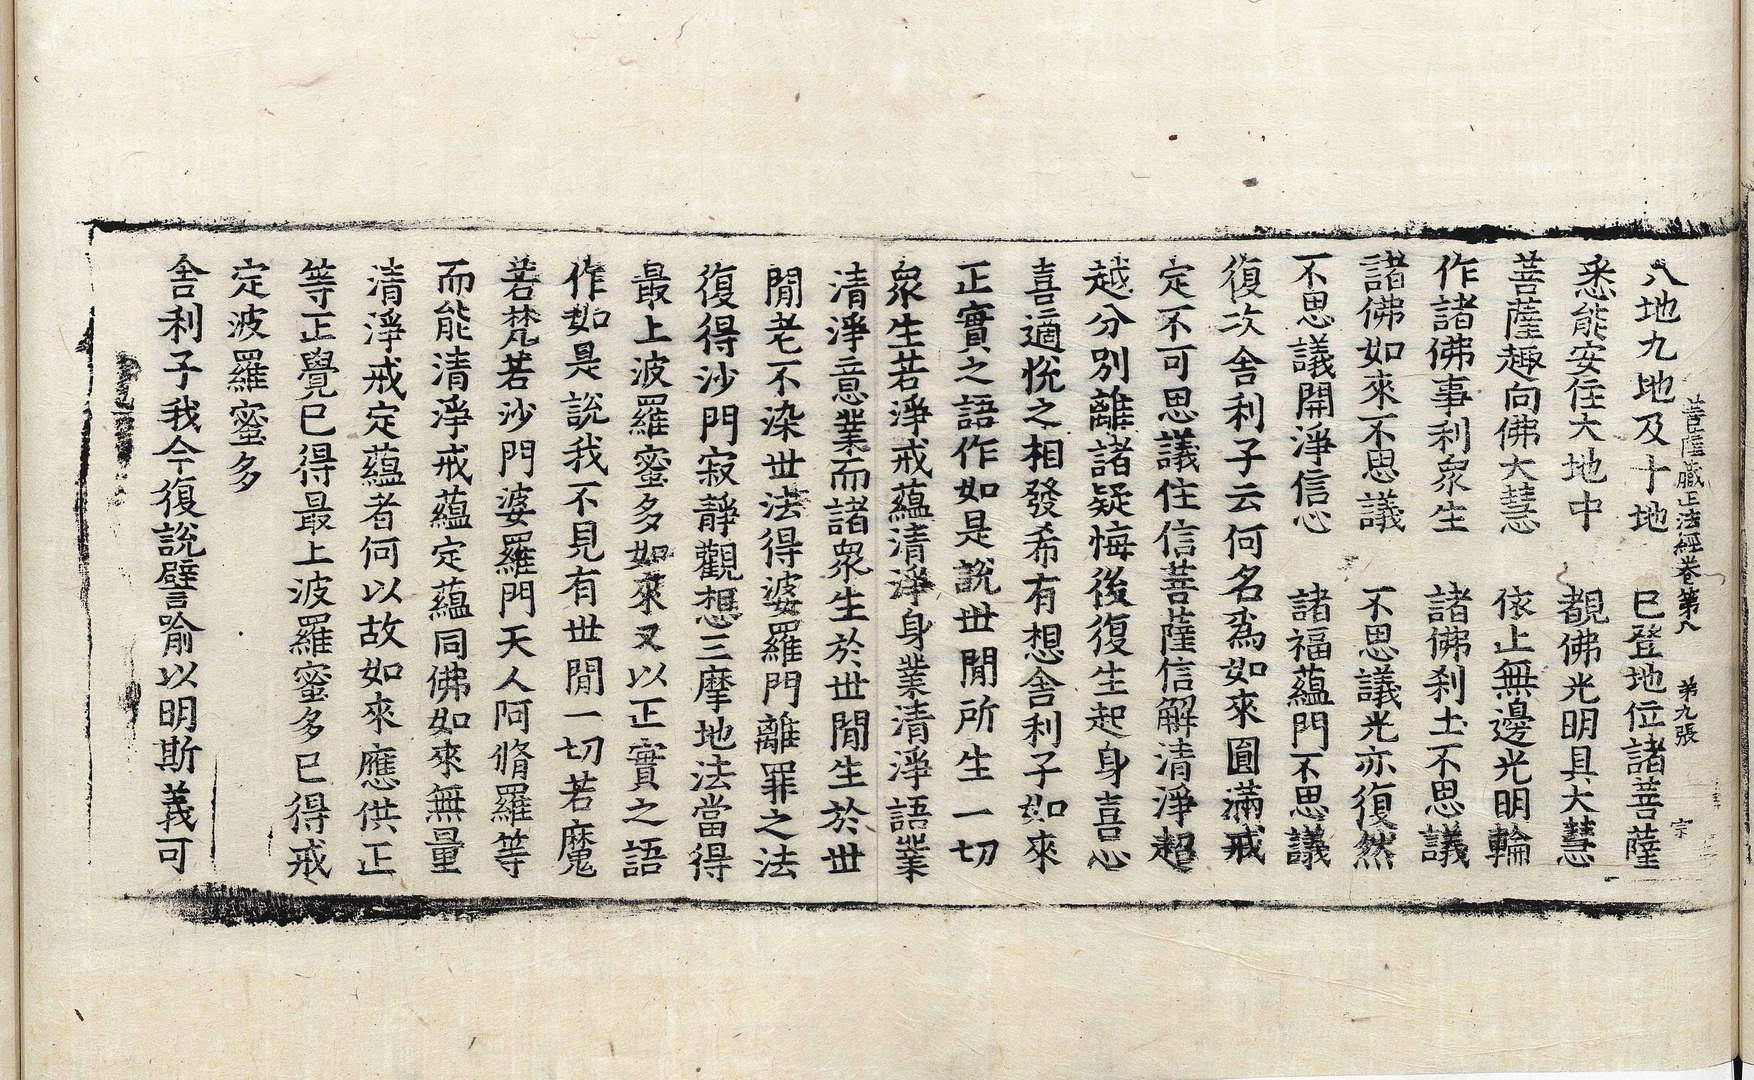 菩薩藏正法經卷第八 第九張 宗
八地九地及十地 已登地位諸菩薩
悉能安住大地中 覩佛光明具大慧
菩薩趣向佛大慧 依止無邊光明輪
作諸佛事利衆生 諸佛刹土不思議
諸佛如來不思議 不思議光亦復然
不思議開淨信心 諸福蘊門不思議
復次舍利子云何名爲如來圓滿戒
定不可思議住信菩薩信解清淨超
越分別離諸疑悔後復生起身喜心
喜適悅之相發希有想舍利子如來
正實之語作如是說世閒所生一切
衆生若淨戒蘊清淨身業清淨語業
清淨意業而諸衆生於世閒生於世
閒老不染世法得婆羅門離罪之法
復得沙門寂靜觀想三摩地法當得
最上波羅蜜多如來又以正實之語
作如是說我不見有世閒一切若魔
若梵若沙門婆羅門天人阿脩羅等
而能清淨戒蘊定蘊同佛如來無量
清淨戒定蘊者何以故如來應供正
等正覺已得最上波羅蜜多已得戒
定波羅蜜多
舍利子我今復說譬喻以明斯義可